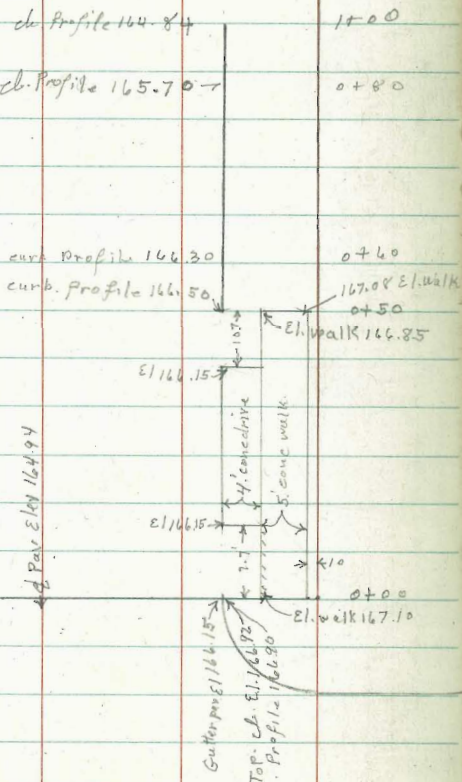 cb. Profile 164.84 1+00
cb. Profile 165.70 0+80
curb Profile 166.30 0+60
curb. Profile 166.50 0+50
167.08 El. walk
El. walk 166.85
10.7'
El 166.15
4' conc drive
5' conc walk.
El 166.15
7.7'
10
Pav. Elev 164.94
0+00
El. walk 167.10
Gutter pav. El 166.15
Top. cb. El. 166.92
Profile 166.90